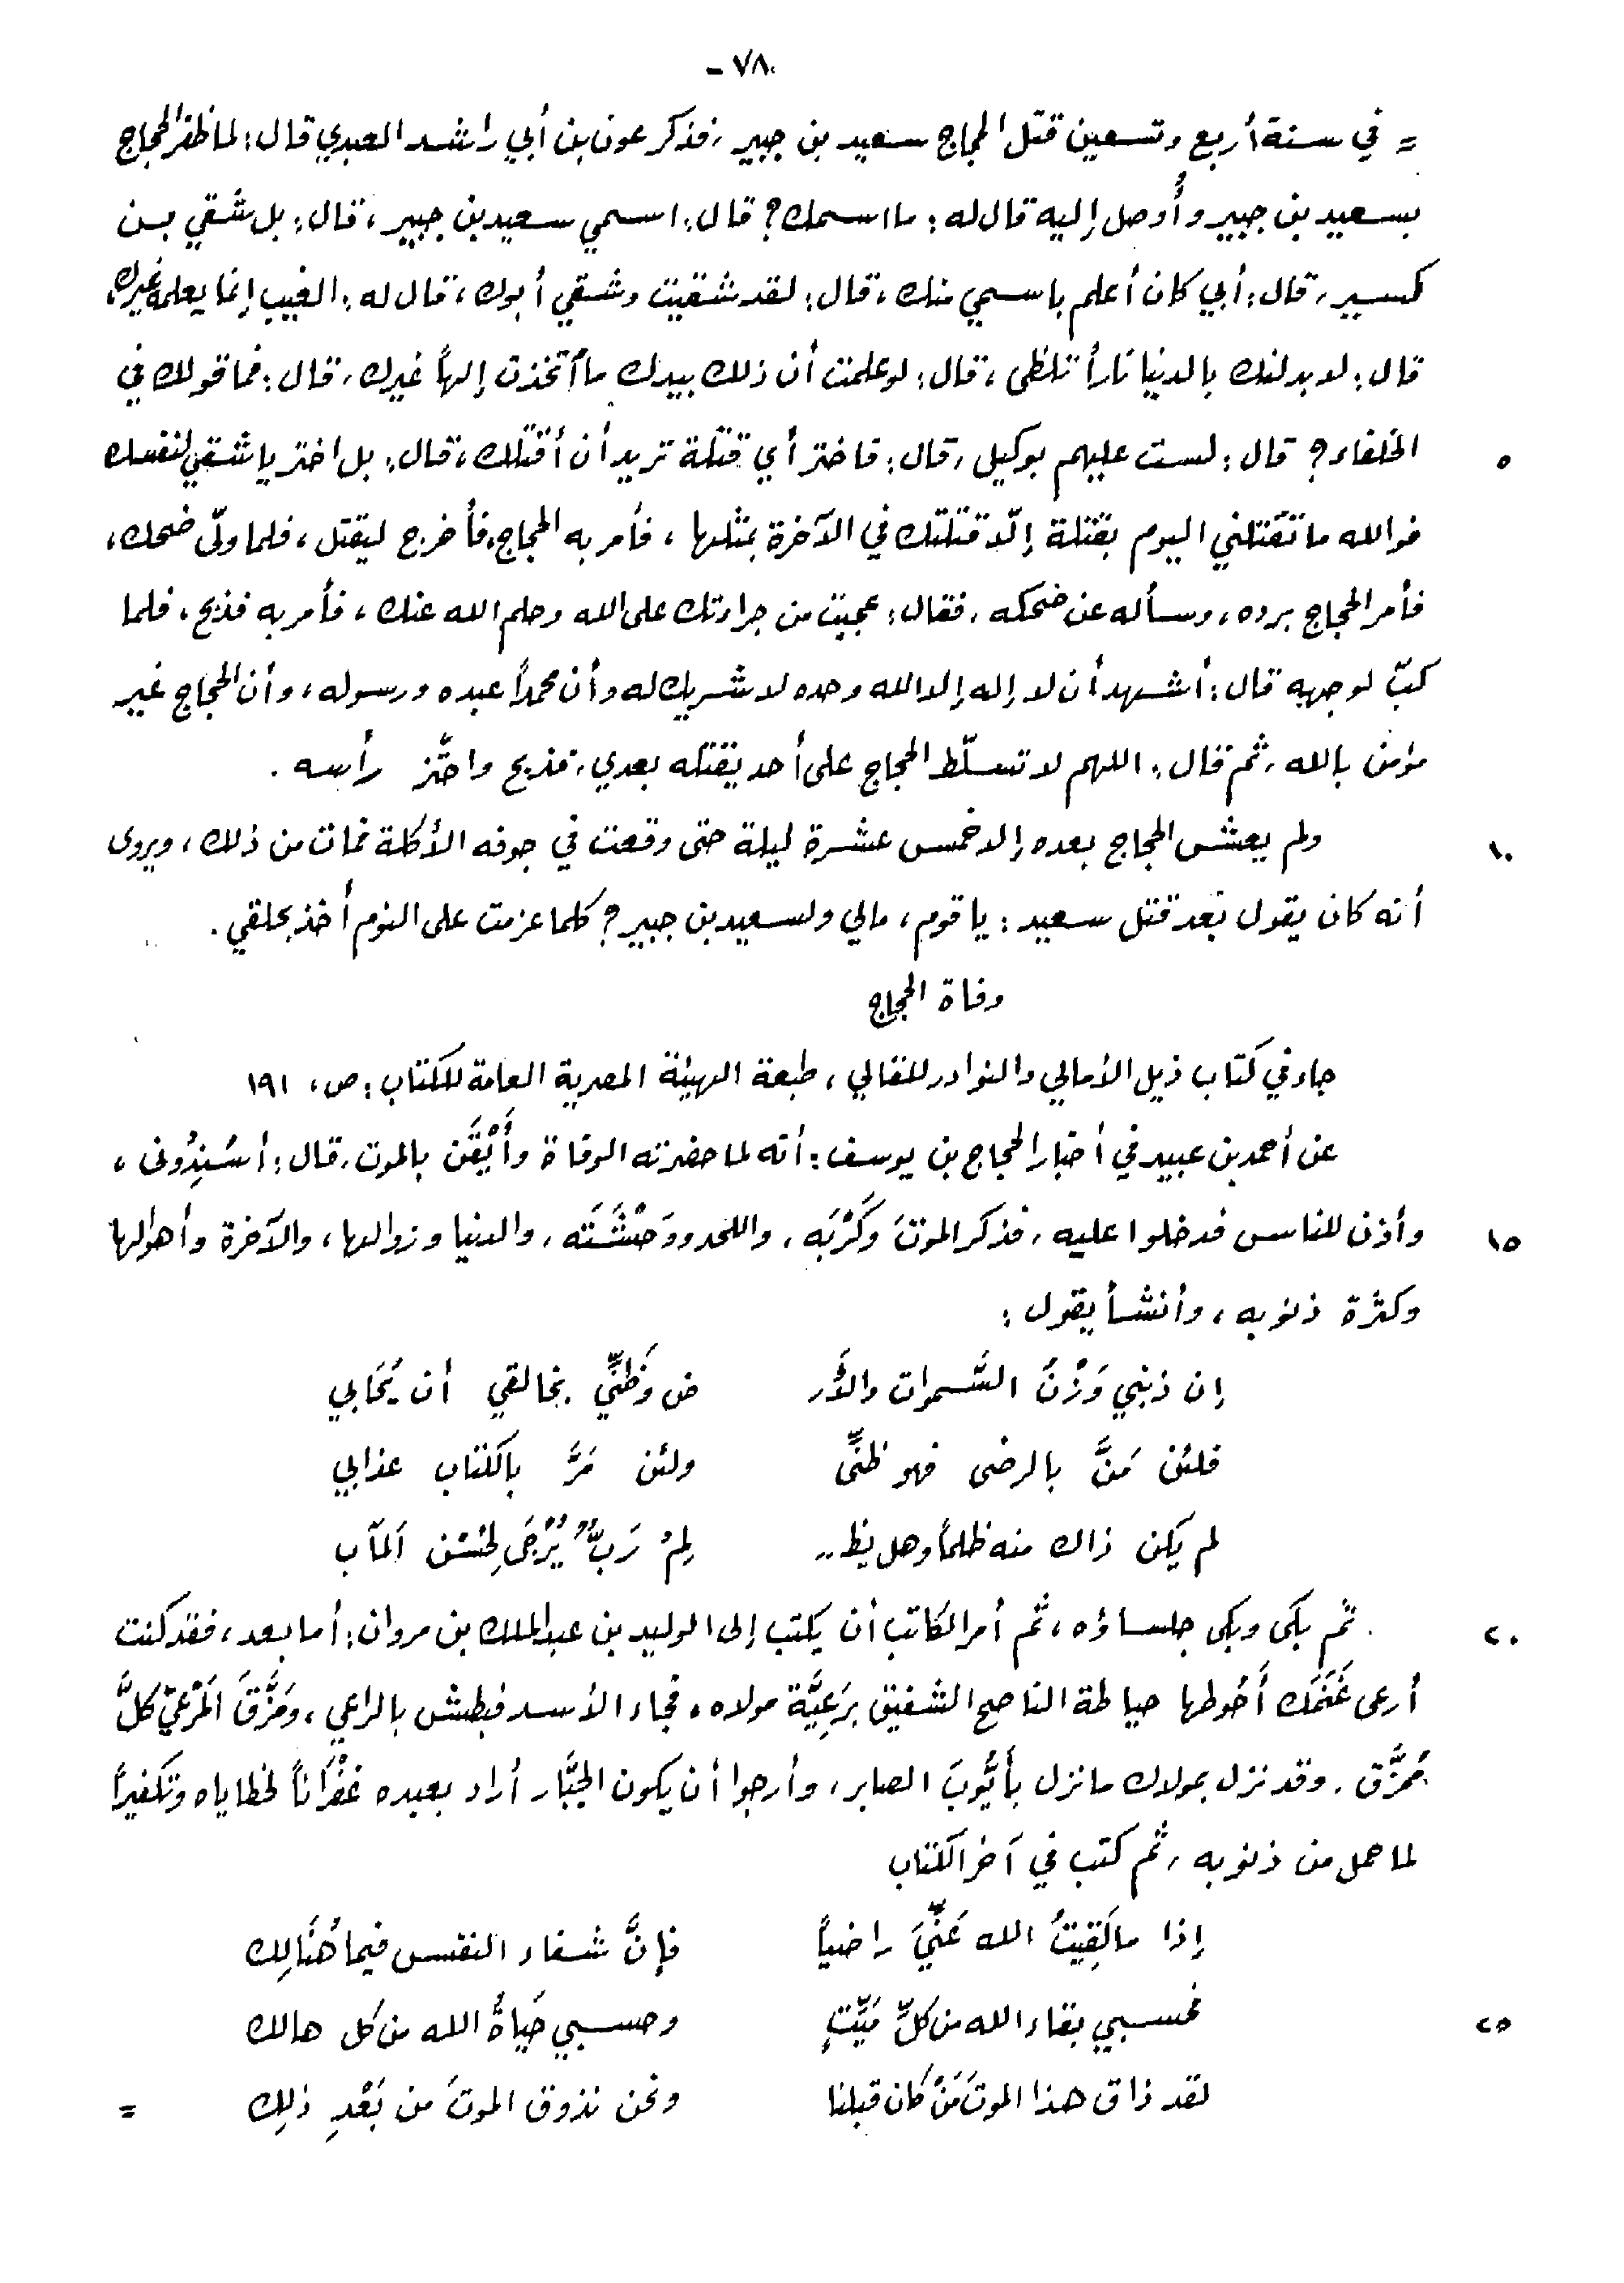 -٧٨-
= في سنة أربع وتسعين قتل الحجاج سعيد بن جبير، فذكر عون بن أبي راشد العبدي قال: لما ظفر الحجاج
بسعيد بن جبير وأُوصل إليه قال له: ما اسمك؟ قال: اسمي سعيد بن جبير، قال: بل شقي بن
كسير، قال: أبي كان أعلم باسمي منك، قال: لقد شقيت وشقي أبوك، قال له: الغيب إنما يعلمه غيرك،
قال: لابدلنك بالدنيا ناراً تلظى، قال: لو علمت أن ذلك بيدك ما اتخذت إلهاً غيرك، قال: فما قولك في
الخلفاء؟ قال: لست عليهم بوكيل، قال: فاختر أي قتلة تريد أن أقتلك، قال: بل اختر يا شقي لنفسك ٥
فوالله ما تقتلني اليوم بقتلة إلّا قتلتك في الآخرة بمثلها، فأمر به الحجاج فأخرج ليقتل، فلما ولّى ضحك،
فأمر الحجاج برده، وسأله عن ضحكه، فقال: عجبت من جراءتك على الله وحلم الله عنك، فأمر به فذبح، فلما
كبّ لوجهه قال: أشهد أن لا إله إلا الله وحده لا شريك له وأن محمداً عبده ورسوله، وأن الحجاج غير
مؤمن بالله، ثم قال: اللهم لا تسلّط الحجاج على أحد يقتله بعدي، فذبح واحتّز رأسه.
ولم يعش الحجاج بعده إلا خمس عشرة ليلة حتى وقعت في جوفه الأكلة فمات من ذلك، ويروى ١٠
أنه كان يقول بعد قتل سعيد: يا قوم، مالي ولسعيد بن جبير؟ كلما عزمت على النوم أخذ بحلقي.
وفاة الحجاج
جاء في كتاب ذيل الأمالي والنوادر للقالي، طبعة الهيئة المصرية العامة للكتاب: ص، ١٩١
عن أحمد بن عبيد في أخبار الحجاج بن يوسف: أنه لما حضرته الوفاة وأَيْقَن بالموت، قال: أسْنِدُونى،
وأذن للناس فدخلوا عليه، فذكر الموتَ وَكَرْبَه، واللحد وَوَحْشَتَه، والدنيا وزوالها، والآخرة وأهوالها ١٥
وكثرة ذنوبه، وأنشأ يقول:
إن ذنبي وَزْنُ السَّموات والأَر ض وَظَنِّي بخالقي أن يُحَابي
فلئن مَنَّ بالرضى فهو ظنِّى ولئن مَرَّ بالكتاب عذابي
لم يكن ذاك منه ظلماً وهل يظـ لِمُ رَبٌّ يُرْجَى لِحُسْن المآب
ثم بكى وبكى جلساؤه، ثم أمر الكاتب أن يكتب إلى الوليد بن عبد الملك بن مروان: أما بعد، فقد كنت ٢٠
أرعى غَنَمَك أَحُوطها حياطة الناصح الشفيق بِرَعِيَّة مولاه، فجاء الأسد فبطش بالراعي، وَمَزَّقَ المَرْعِيّ كلَّ
مُمَزَّق، وقد نزل بمولاك ما نزل بأَيُّوبَ الصابر، وأرجوا أن يكون الجبَّار أراد بعبده غُفْرَاناً لخطاياه وتكفيراً
لما حمل من ذنوبه، ثم كتب في آخر الكتاب
إذا ما لَقِيتُ الله عَنِّيَ راضياً فإنَّ شفاء النفس فيما هُنَالِك
فحسبي بقاء الله من كلِّ مَيِّتٍ وحسبي حَيَاةُ الله من كل هالك ٢٥
لقد ذاق هذا الموتَ مَنْ كان قبلنا ونحن نذوق الموتَ من بَعْدِ ذلِك =